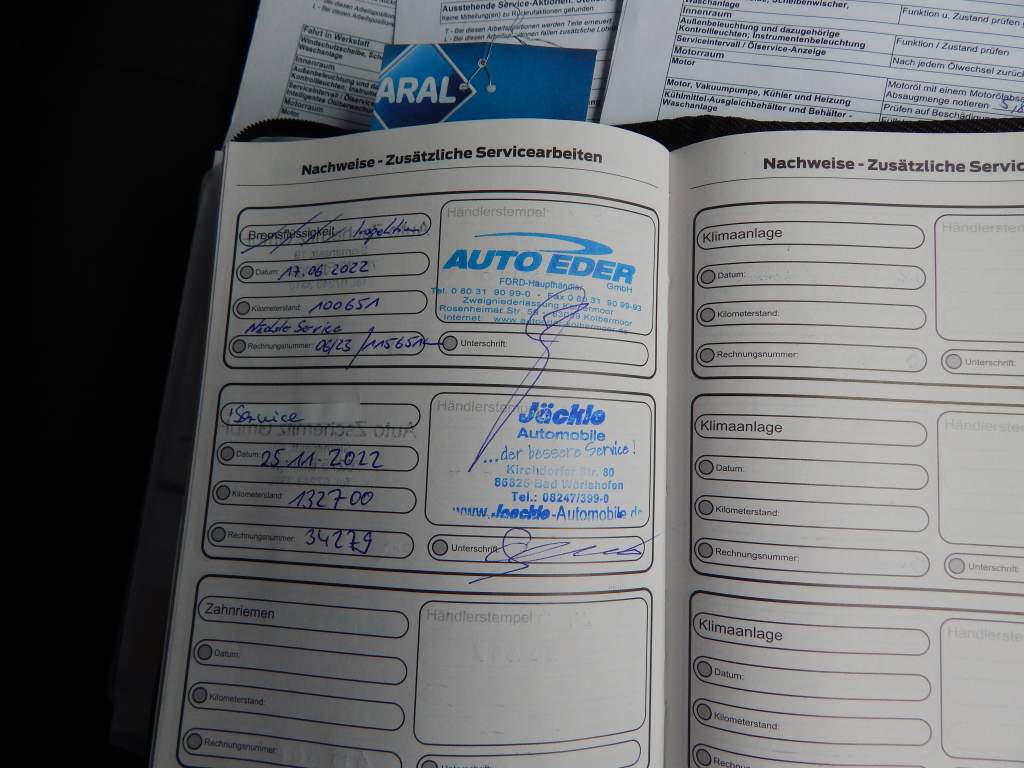 Ausstehende Service-Aktionen:
Keine Mitteilung(en) zu Rückrufaktionen gefunden
T - Bei diesen Arbeitspositionen werden Teile erneuert
L - Bei diesen Arbeitspositionen fallen zusätzliche
Fahrt in Werkstatt
Windschutzscheibe,
Waschanlage
Innenraum
Außenbeleuchtung und
Kontrollleuchten;
Serviceintervall
Motorraum
Motor
ARAL
Waschanlage
Innenraum
Funktion u. Zustand prüfen
Außenbeleuchtung und dazugehörige
Kontrollleuchten; Instrumentenbeleuchtung
Funktion / Zustand prüfen
Serviceintervall / Ölservice-Anzeige
Nach jedem Ölwechsel
Motorraum
Motor
Motoröl mit einem
Absaugmenge notieren
Motor, Vakuumpumpe, Kühler und Heizung
Kühlmittel-Ausgleichbehälter und Behälter -
Waschanlage
Nachweise - Zusätzliche Servicearbeiten
Bremsflüssigkeit
Datum: 17.06.2022
Kilometerstand: 100651
Nächste Service
Rechnungsnummer: 06/23
Händlerstempel:
AUTO EDER
GmbH
FORD-Haupthändler
Tel. 0 80 31 90 99-0 - Fax 0 80 31 90 99-93
Zweigniederlassung Kolbermoor
Rosenheimer Str. 53 - 83059 Kolbermoor
Internet
Unterschrift:
Service
Datum: 25.11.2022
Kilometerstand: 132700
Rechnungsnummer: 34279
Händlerstempel
Jäckle
Automobile
...der bessere Service!
Kirchdorfer Str. 80
86825 Bad Wörishofen
Tel.: 08247/399-0
www.Jaeckle-Automobile.de
Unterschrift:
Zahnriemen
Datum:
Kilometerstand:
Rechnungsnummer:
Händlerstempel
Unterschrift:
Nachweise - Zusätzliche
Klimaanlage
Datum:
Kilometerstand:
Rechnungsnummer:
Unterschrift:
Klimaanlage
Datum:
Kilometerstand:
Rechnungsnummer:
Unterschrift:
Klimaanlage
Datum:
Kilometerstand:
Rechnungsnummer: